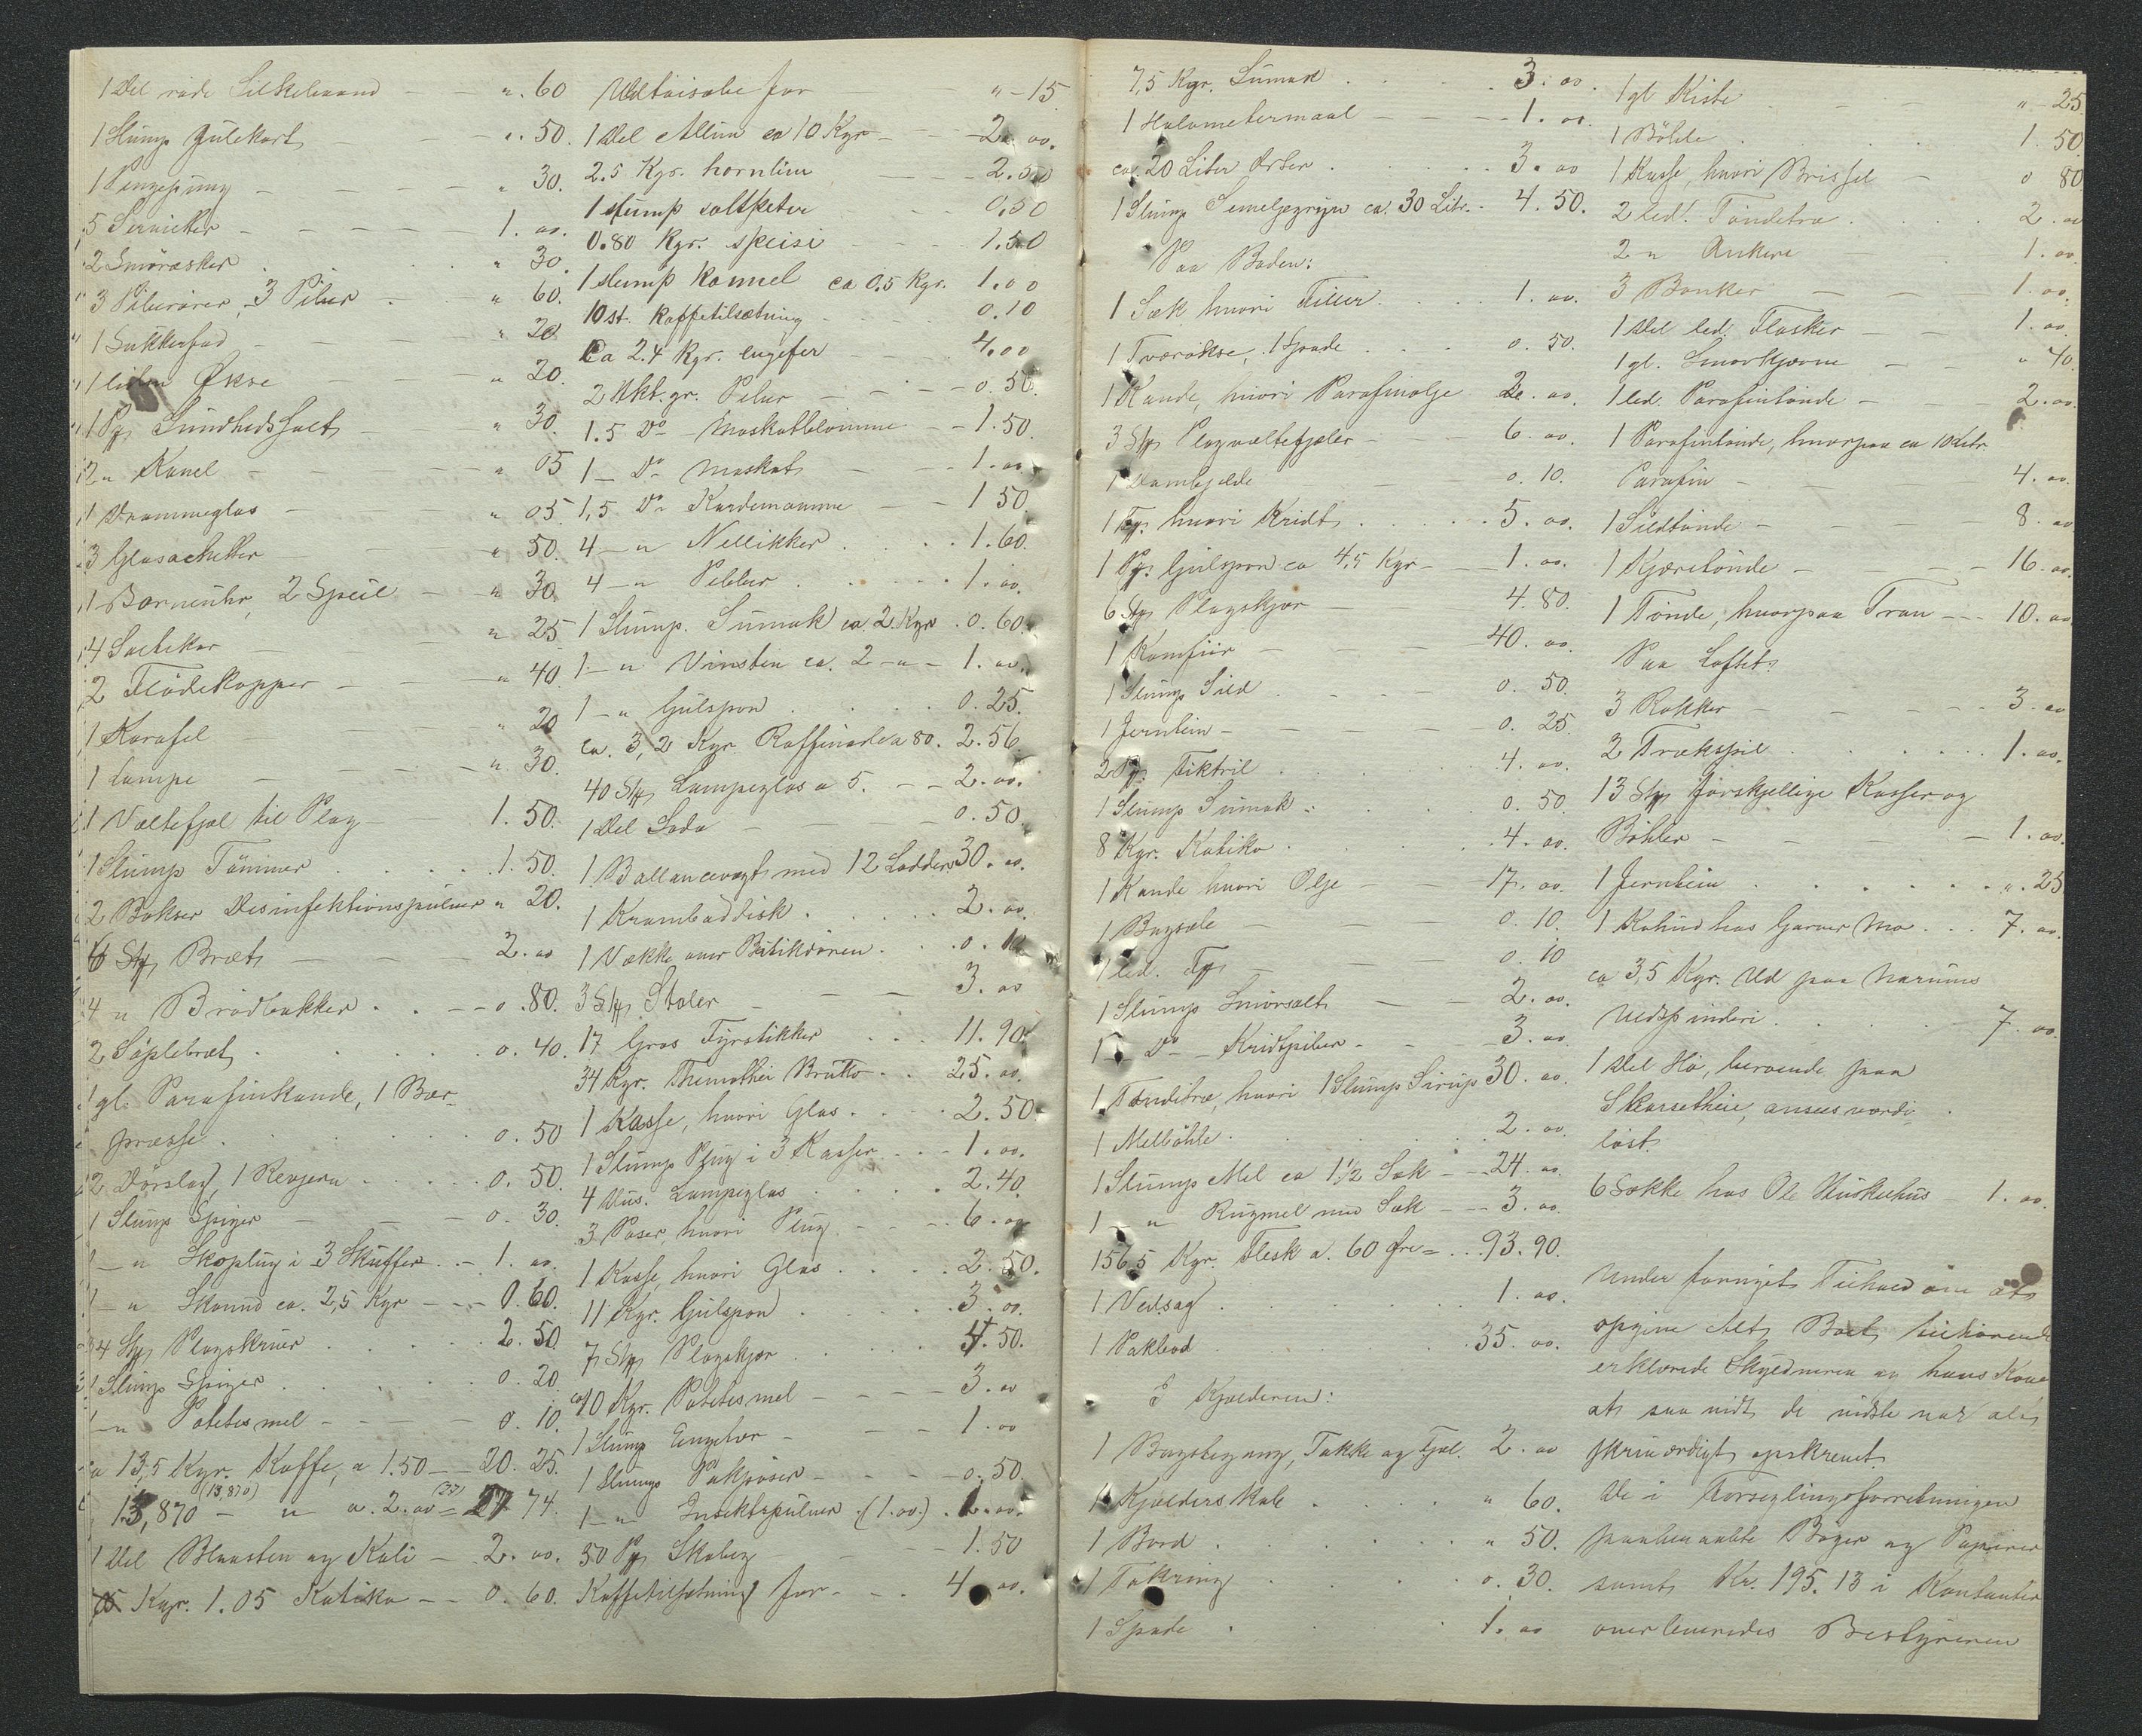 1 Del røde Silkebaand — — „. 60
1 Slump Julekort — — „. 50.
1 Pengepung — — — „ 30.
5 Servietter — — — 1. oo.
2 Smøræsker . . . „ 30.
3 Piberører, 3 Piber . „ 60.
1 Sukkerfad — — — „ 20
1 liden Økse — — — „ 20.
1 Pk Sundhedssalt — „ 30.
2 „ Kanel — — — „ 05
1 Drammeglas — — „ 05.
3 Glasasietter — — „ 50.
1 Barneuhr, 2 Speil — „ 30.
4 Saltekar — — „ 25
2 Flødekopper — — „ 40.
1 Karafel — — — „ 20
1 Lampe — — — „ 30.
1 Væltefjæl til Plog — 1. 50.
1 Slump Tømmer . . . . 1. 50.
2 Bokser Desinfektionspulver „ 20.
6 Stk Bræt — — — 2. oo
4 „ Brødbakker . . — 0. 80.
2 Søplebræt . . . . 0. 40.
1 gl. Parafinkande, 1 Bær-
presse . . . . . 0. 50
2 Dørslag, 1 Rivjern . . . 0. 50.
1 Slump Spiger — — 0. 30.
1 — „ Skoplug i 3 Skuffer . — 1. oo.
1 — „ Skonud ca. 2,5 Kgr — — 0. 60.
34 Stk Plogskruer . . . . 2. 50.
1 Slump Spiger . . . . 0. 20.
1 — „ Potetesmel — — — 0. 10.
ca 13,5 Kgr. Kaffe, a 1.50 — 20. 25.
(13,870) (27)
13,870 — „ a. 2. oo = 27 74.
1 Del Blaasten og Kali — 2. oo.
Kgr. 1.05 Katiko — — 0. 60.
Uldtøisabe for „ - 15
1 Del Allun ca 10 Kgr — — 2. oo.
2.5 Kgr. hornlim — — 2.50
1 slump saltpeter . . 0,50
0.80 Kgr. speisi — — 1.50
1 slump Kannel ca 0.5 Kgr. 1.00
10 st. Kaffetilsætning . . 0.10
Ca 2.4 Kgr. engefer 4.00
2 Hkt. gr. Peber — — — 0. 50.
1.5 Do — Muskatblomme — 1.50.
1 — Do — Muskat — — 1. oo
1,5 Do Kardemomme — 1 50.
4 — „ Nellikker . . . . 1. 60.
4 — „ Pebber . . . . 1. oo.
1 Slump. Sumak ca. 2. Kgr . 0. 60.
1 — „ Vinsten ca. 2 — „ — 1. oo.
1 — „ Gulspon . . . . 0. 25.
ca. 3,2 Kgr. Raffinade a 80. 2. 56.
40 Stk Lampeglas a 5. — — 2. oo.
1 Del Soda — — — 0. 50.
1 Ballancevægt med 12 Lodder 30. oo.
1 Krambaddisk . . . . 2. oo.
1 Vække over Butikdøren . . . 0. 10
3 Stk Stoler — — — 3. oo
17 Gros Fyrstikker . . . 11. 90
34 Kgr. Themothei Brutto . . 25. oo.
1 Kasse, hvori Glas . . . . 2. 50.
1 Slump Plug i 3 Kasser . . . 1. oo.
4 Dus. Lampeglas . . . . 2. 40.
3 Poser, hvori Plug . . . 6. oo
1 Kasse, hvori Glas . . . . 2. 50.
11 Kgr. Gulspon . . . . 3. oo.
7 Stk Plogskjær . . . . 4. 50.
ca 10 Kgr. Potetesmel — — — 3. oo
1 Slump Engefær — — — 1. oo
1 Slumps Pakposer — — — 0. 50.
1 — „ Insektspulver (1.oo.) . 1. oo.
50 Pk Skobeg — — — 1. 50
Kaffetilsætning for — . . 4. oo.
7,5 Kgr. Sumak . . . . 3. oo.
1 Halvmetermaal — — — 1. oo.
ca. 20 Liter Erter . . . . 3. oo
1 Slump Semeljegryn ca. 30 Litr. . 4. 50.
Paa Boden:
1 Sæk hvori Filler . . . . 1. oo.
1 Tværøkse, 1 Spade . . . 0. 50.
1 Kande, hvori Parafinolje 2. oo.
3 Stk Plogvæltefjæler — — 6. oo.
1 0. 10.
1 Fjr. hvori Kridt . . . . 5. oo.
1 Pk. Gulspon ca 4,5 Kgr — — 1. oo.
6 Stk Plogskjær — — 4. 80.
1 Komfur — — — 40. oo.
1 Slump Sild . . . — 0. 50.
1 Jerntein — — — 0. 25.
2 Pk. Tiktril . . . . 4. oo.
1 Slump Sumak . . . 0. 50
8 Kgr. Katiko . . . . 4. oo.
1 Kande hvori Olje — — 17. oo.
1 Bogsole — — — 0. 10.
1 led. Fjr — — — 0. 10
1 Slump Smørsalt — — 2. oo.
1 Do — Kridtpiber — — 3. oo.
1 Tøndetræ, hvori 1 Slump Sirup 30. oo.
1 Melbøhle . . . . 2. oo.
1 Slump Mel ca 1 1/2 Sæk — — 24. oo.
1 — „ Rugmel med Sæk — — 3. oo.
156,5 Kgr. Flesk a. 60 Øre = . . 93. 90.
1 Vedsag . . . . 1. oo.
1 Pakbod . . . . 35. oo.
I Kjælderen:
1 Bagstegang, Takke og Fjæl. 2. oo
1 Kjælderskab . . . . „ 60.
1 Bord . . . . . „ 50.
1 Takring . . . . 0. 30.
1 Spade . . . . 1. oo
1 gl Kiste — — „ - 25
1 Bøhle . . . . 1. 50.
1 Kasse, hvori Brissel — 0 80
2 led. Tøndetræ . . . . 2. oo
2 „ Ankere — — . 1. oo.
3 Bonker — — — 1. oo.
1 Del led. Flasker — — 1. oo.
1 gl. Smørkjerne — — „ 40.
1 led. Parafintønde — — 2. oo.
1 Parafintønde, hvorpaa ca 10 Litr.
Parafin — — — 4. oo.
1 Sildtønde — — — 8. oo
1 Kjøretønde — — — 16. oo.
1 Tønde, hvorpaa Tran — — 10. oo
Paa Loftet:
3 Rokker — — — 3. oo
2 Trækspil . . . . 1. oo.
13 Stk forskjellige Kasser og
Bøhler — — — 1. oo.
1 Jerntein . . . . . „. 25
1 Kohud hos Garver Mo . . . 7. oo.
ca 3,5 Kgr. Uld paa Narums
Uldspinderi . . . . 7. oo.
1 Del Hø, beroende paa
Skarsetheie, ansees værdi-
løst.
6 Sække hos Ole Huskehus — 1. oo.
Under fornyet Tilhold om at
opgive Alt, Boet tilhørende
erklærede Skyldneren og hans Kone
at saa vidt de vidste var alt
skriværdigt opskrevet.
De i Forseglingsforretningen
paaberaabte Bøger og Papirer
samt Kr. 195. 13 i Kontanter
overleveredes Bestyreren